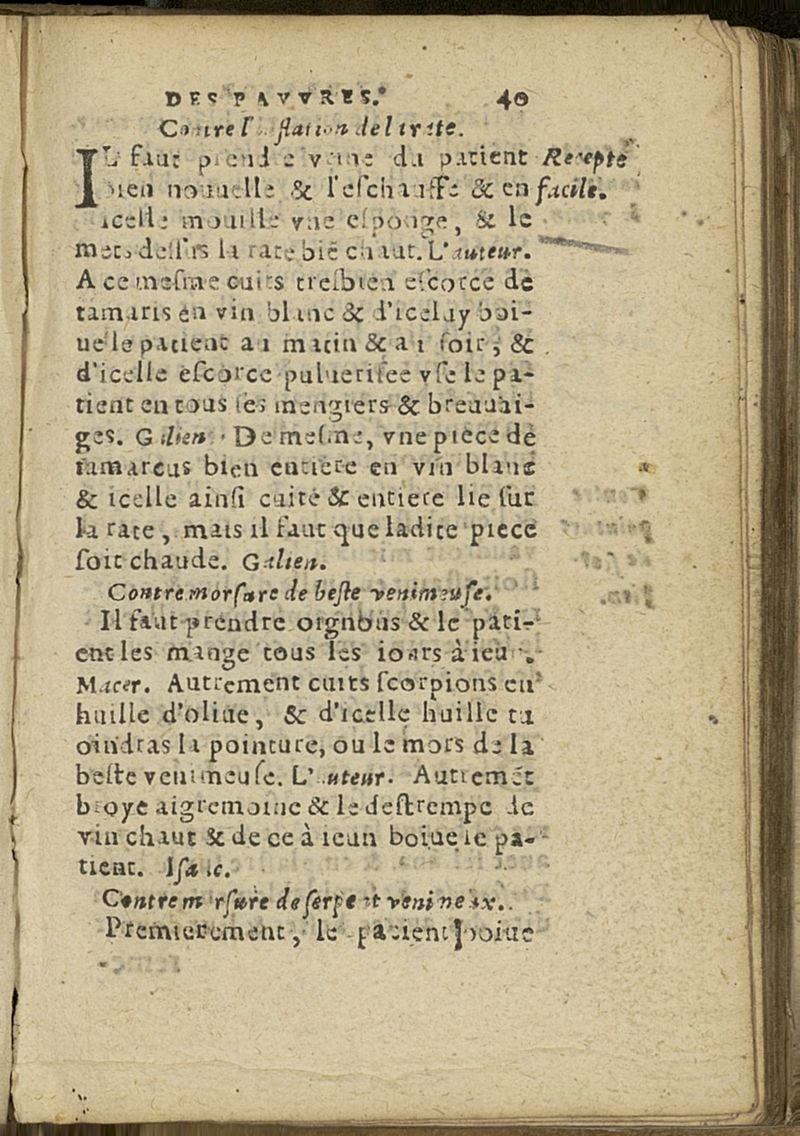 DES PAVVRES. 40
Contre l'inflation de la rate.
IL faut prendre vrine du patient Recepte
bien nouuelle & l'eschauffe & en facile.
icelle mouille vne esponge, & le
mets dessus la rate biẽ chaut. L'auteur.
A ce mesme cuits tresbien escorce de
tamaris en vin blanc & d'iceluy boi-
ue le patient au matin & au soir, &
d'icelle escorce puluerisee vse le pa-
tient en tous ses mengiers & breuuai-
ges. Galien. De mesme, vne piece de
tamarcus bien entiere en vin blanc
& icelle ainsi cuite & entiere lie sur
la rate, mais il faut que ladite piece
soit chaude. Galien.
Contre morsure de beste venimeuse.
Il faut prendre oignons & le pati-
ent les mange tous les iours à ieun.
Macer. Autrement cuits scorpions en
huille d'oliue, & d'icelle huille tu
oindras la pointure, ou le mors de la
beste venimeuse. L'auteur. Autremẽt
broye aigremoine & le destrempe de
vin chaut & de ce à ieun boiue le pa-
tient. Isaac.
Contre morsure de serpent venimeux.
Premierement, le patient boiue